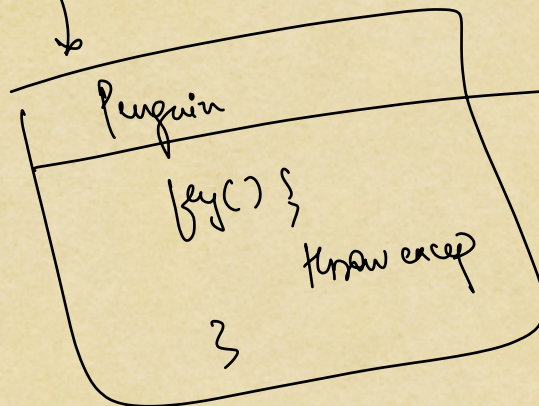 Penguin
fly() {
throw excep
}